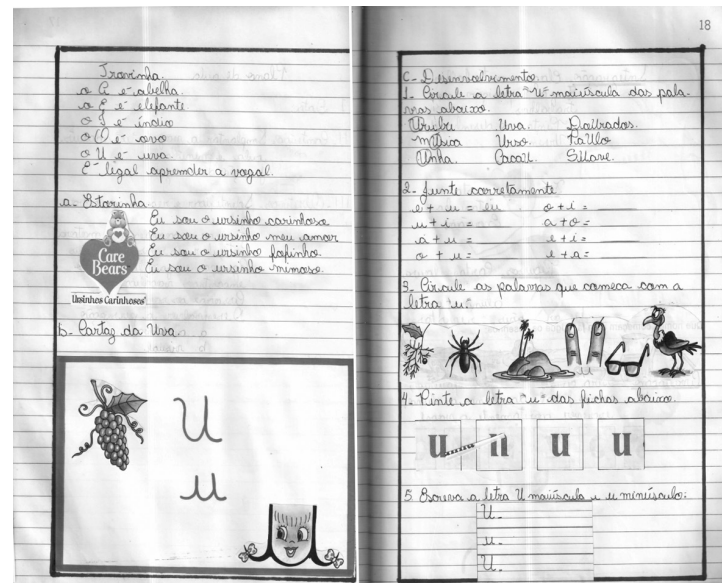 Travinha.
o A é abelha.
o E é elefante.
o I é índio
o O é ovo
o U é uva.
É legal aprender a vogal.
a- Estorinha
Eu sou o ursinho carinhoso
Eu sou o ursinho meu amor
Eu sou o ursinho fofinho
Eu sou o ursinho mimoso.
Care
Bears
Ursinhos Carinhosos
b- Cartaz da Uva.
U
u
18
C- Desenvolvimento
1- Circule a letra "U" maiúscula das pala-
vras abaixo.
Urubu Uva. Dourados.
mÚsica Urso. PaUlo
Unha. CacaU. SUave.
2- Junte corretamente
e + u = eu o + i =
u + i = a + o =
a + u = e + i =
o + u = e + a =
3- Circule as palavras que começa com a
letra "u"
U
4- Pinte a letra "u" das fichas abaixo.
u u u u
5 Escreva a letra U maiúscula e u minúsculo:
U-
u-
U-